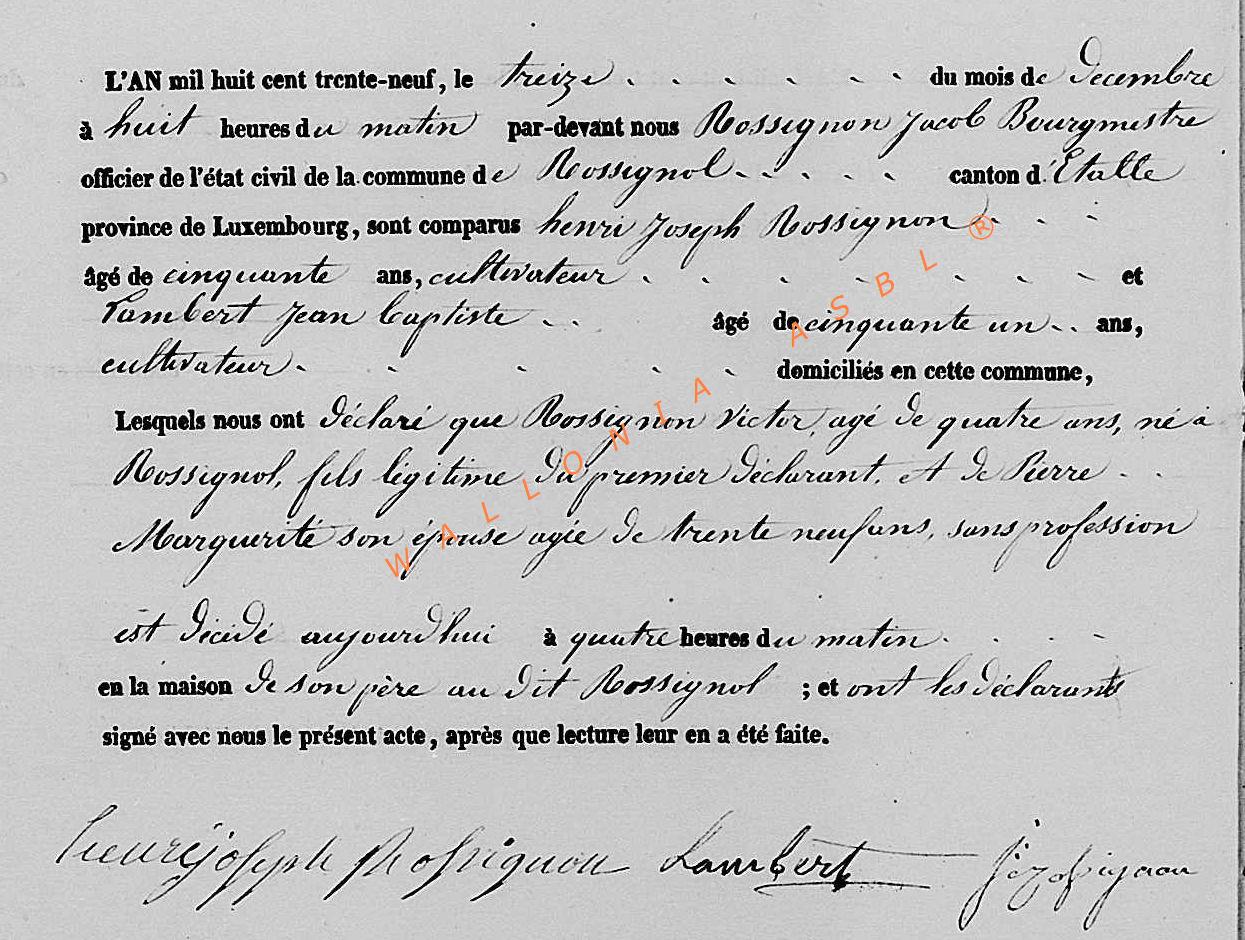 L'AN mil huit cent trente-neuf, le treize du mois de decembre
à huit heures du matin par-devant nous Rossignon Jacob Bourgmestre
officier de l'état civil de la commune de Rossignol canton d'Etalle
province de Luxembourg, sont comparus henri Joseph Rossignon
âgé de cinquante ans, cultivateur et
Lambert Jean baptiste âgé de cinquante un ans,
cultivateur domiciliés en cette commune,
Lesquels nous ont déclaré que Rossignon Victor, agé de quatre ans, né à
Rossignol, fils légitime du premier déclarant, et de Pierre
Marguerite son épouse agée de trente neuf ans, sans profession
est décédé aujourd'hui à quatre heures du matin
en la maison de son père au dit Rossignol ; et ont les déclarants
signé avec nous le présent acte, après que lecture leur en a été faite.
henry joseph Rossignon Lambert J rossignon
WALLONIA ASBL ®